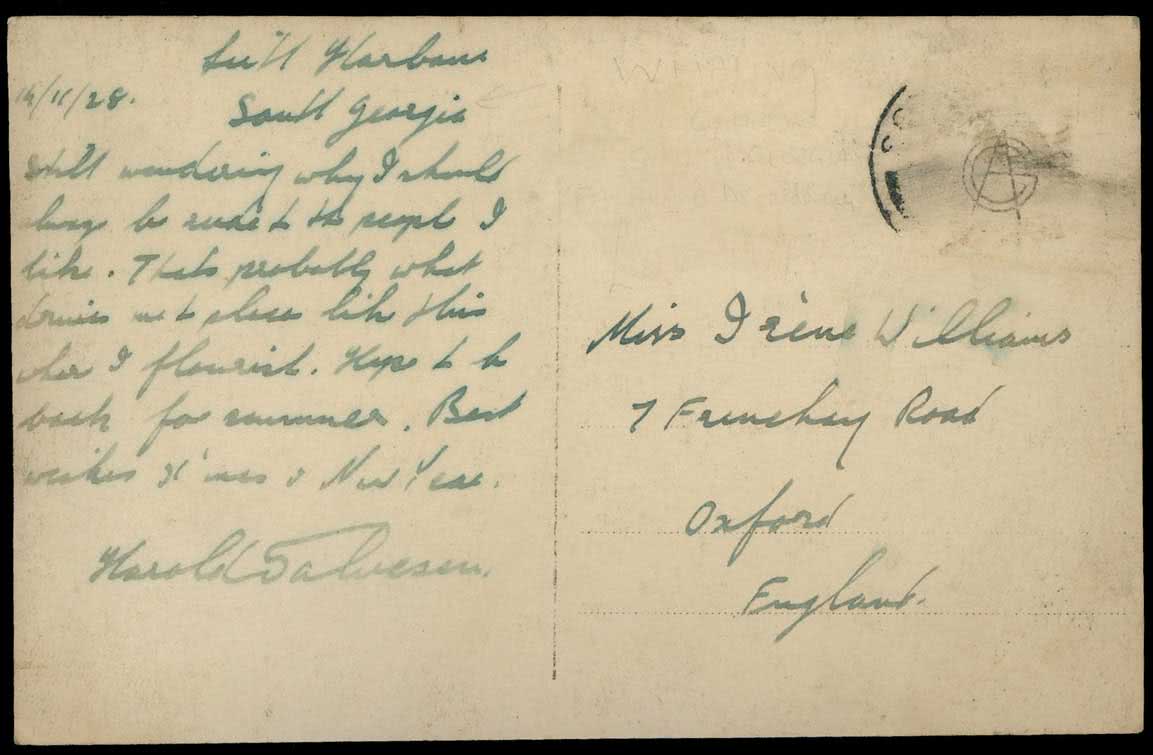 Leith Harbour
19/11/28.
South Georgia
Still wondering why I should
always be rude to the people I
like. Thats probably what
drives me to places like this
where I flourish. Hope to be
back for summer. Best
wishes X'mas & New Year.
Harold Salvesen.
Miss Irène Williams
7 Frenchay Road
Oxford
England.